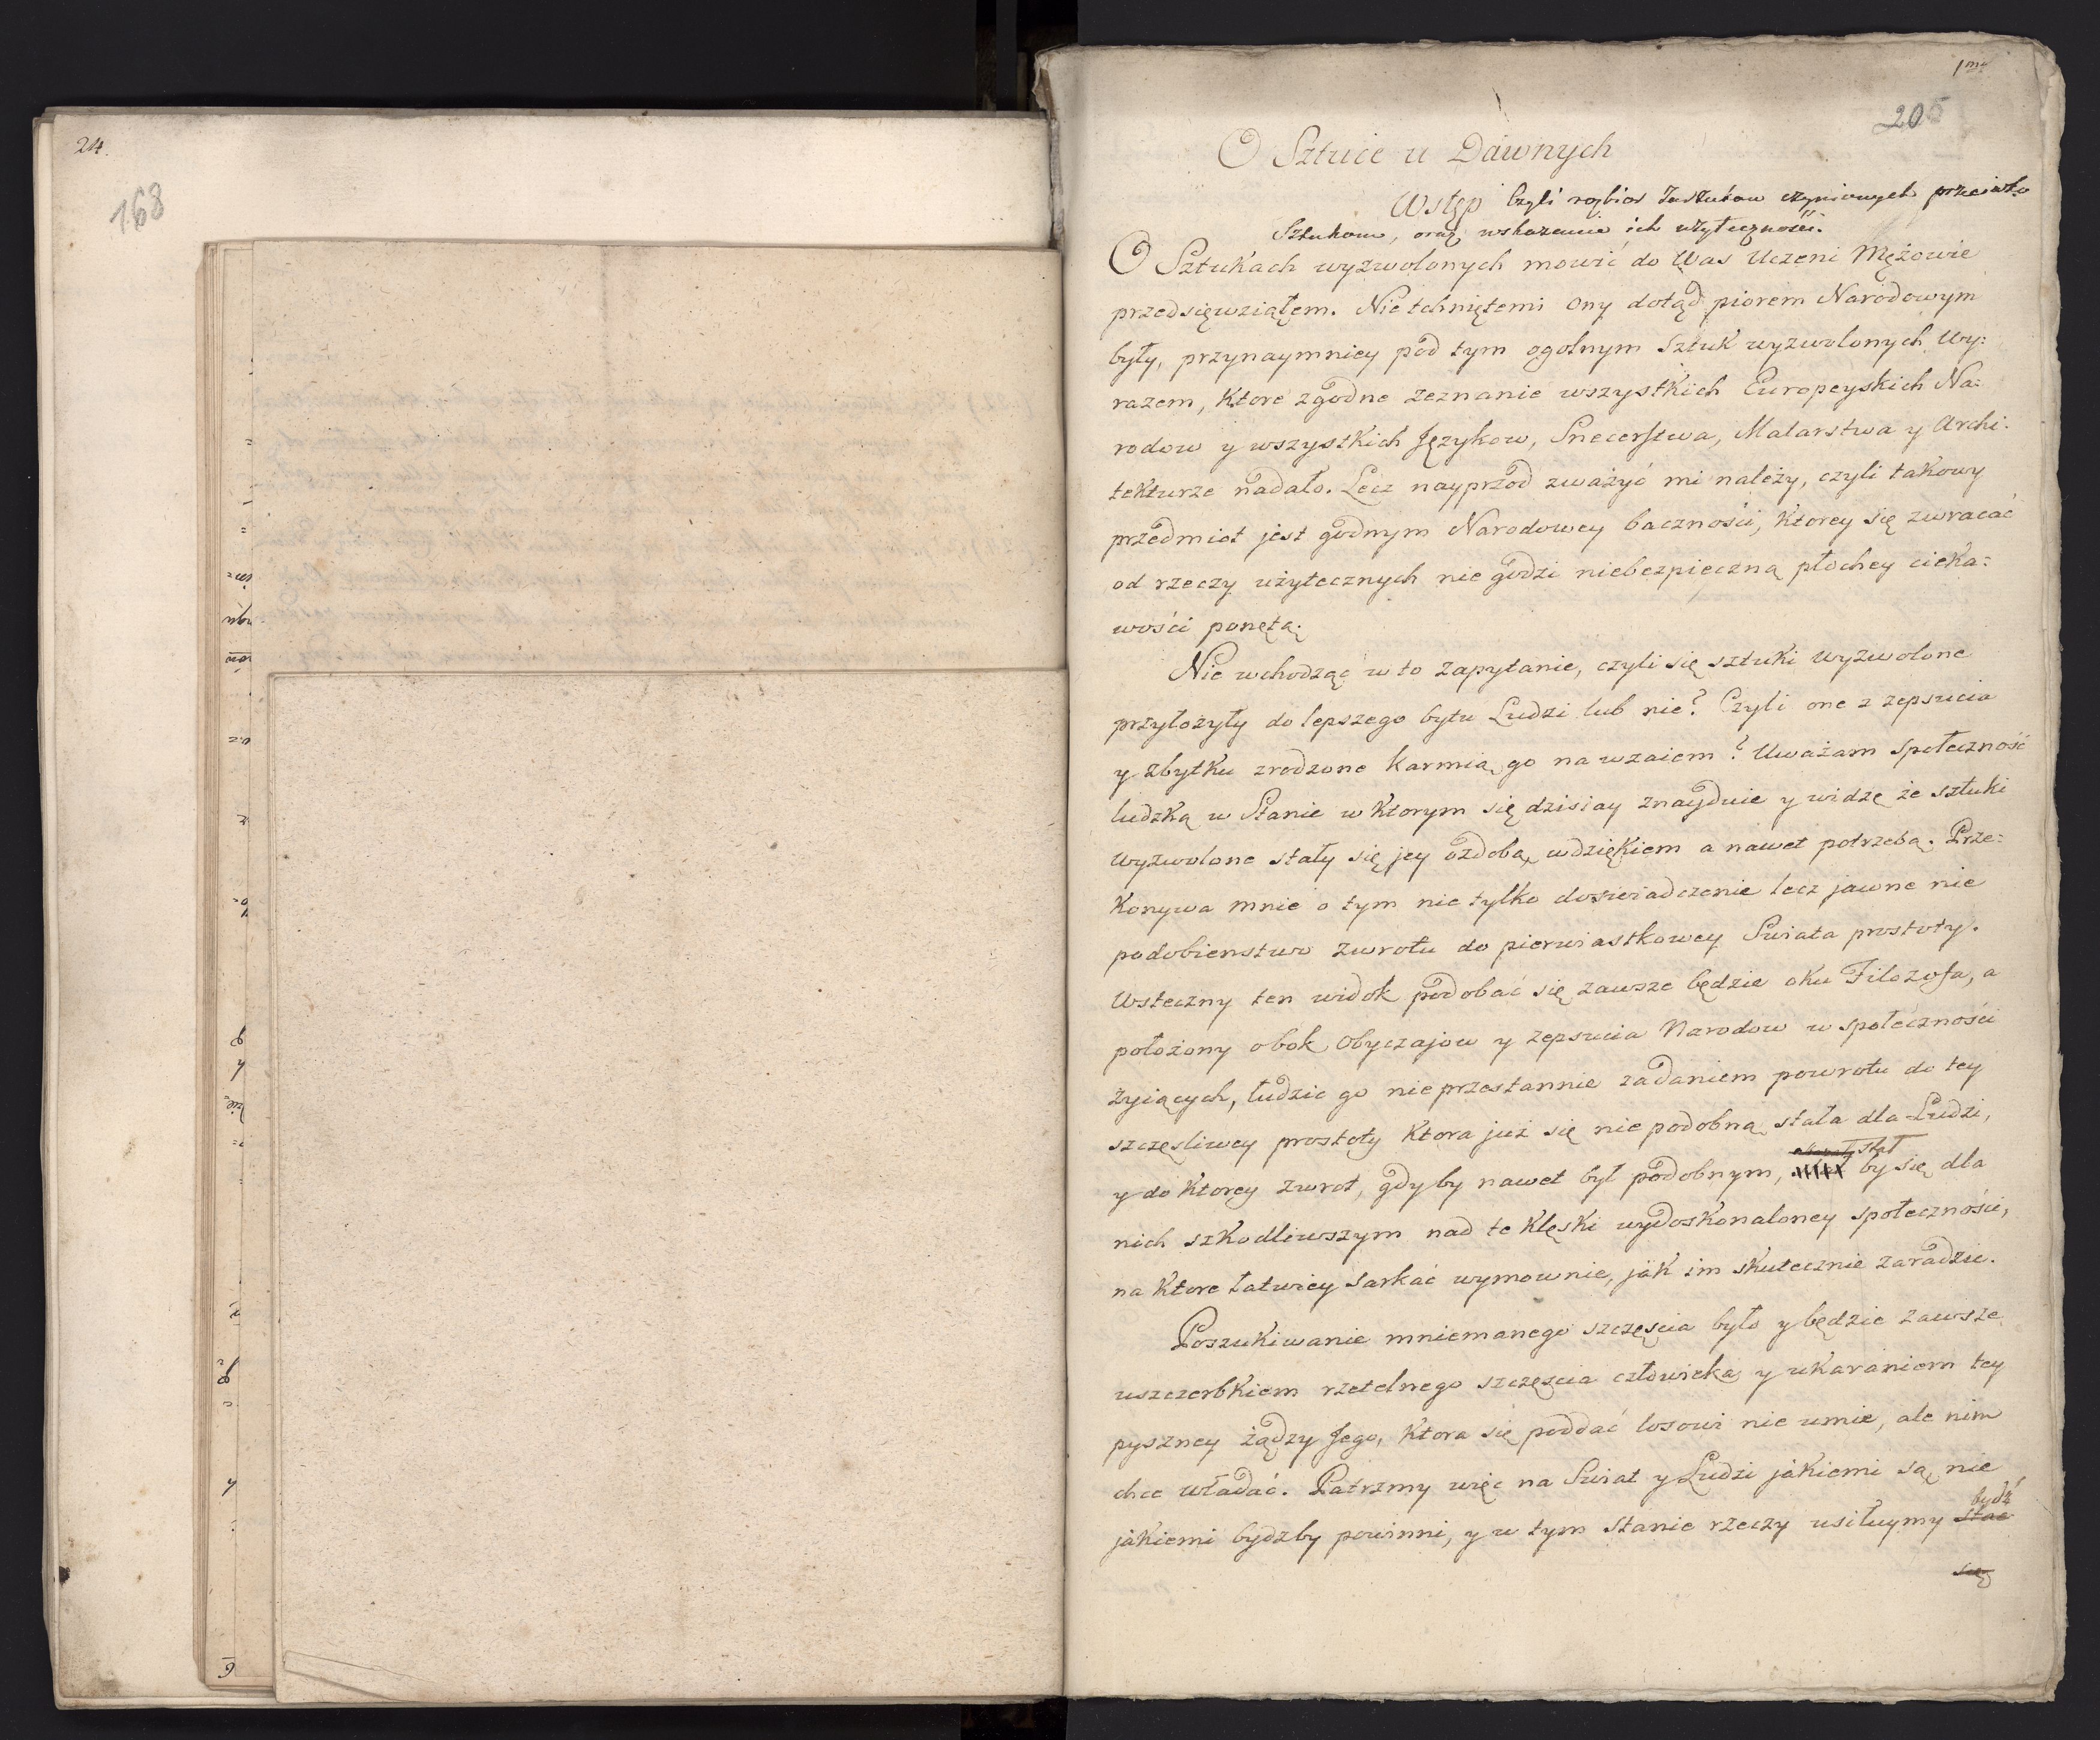 24.
168
1my
205
O Sztuce u Dawnych
Wstęp Czyli rozbior Zarzutow czynionych przeciwko
Sztukom, oraz wskazanie ich użyteczności.
O Sztukach wyzwolonych mowić do Was Uczeni Mężowie
przedsięwziąłem. Nie tchniętemi ony dotąd piorem Narodowym
były, przynaymniey pod tym ogolnym Sztuk wyzwolonych Wy:
razem, Ktore zgodne zeznanie wszystkich Europeyskich Na:
rodow y wszystkich Językow, Snecerstwa, Malarstwa y Archi:
tekturze nadało. Lecz nayprzod zważyć mi należy, czyli takowy
przedmiot jest godnym Narodowey baczności, Ktorey się zwracać
od rzeczy użytecznych nie godzi niebezpieczną płochey cieka:
wości ponętą.
Nie wchodząc w to zapytanie, czyli się sztuki wyzwolone
przyłożyły do lepszego bytu Ludzi lub nie? Czyli one z zepsucia
y zbytku zrodzone karmią go na wzaiem? Uważam społeczność
ludzką w Stanie w Ktorym się dzisiay znayduie y widzę że sztuki
wyzwolone stały się jey ozdobą, wdziękiem a nawet potrzebą. Prze:
Konywa mnie o tym nie tylko doswiadczenie lecz jawne nie
podobienstwo zwrotu do pierwiastkowey Swiata prostoty.
Wsteczny ten widok podobać się zawsze będzie oku Filozofa, a
położony obok Obyczajow y zepsucia Narodow w społeczności
żyiących, łudzie go nieprzestannie żadaniem powrotu do tey
szczęsliwey prostoty Ktora już się nie podobną stała dla Ludzi,
stał
y do Ktorey zwrot, gdyby nawet był podobnym, by się dla
nich szkodliwszym nad te Klęski wydoskonaloney społeczności,
na Ktore łatwiey sarkać wymownie, jak im skutecznie zaradzić.
Poszukiwanie mniemanego szczęscia było y będzie zawsze
uszczerbkiem rzetelnego szczęscia człowieka y ukaraniem tey
pyszney żądzy Jego, Ktora się poddać losowi nie umie, ale nim
chce władać. Patrzmy więc na Swiat y Ludzi jakiemi są, nie
bydź
jakiemi bydzby powinni, y w tym stanie rzeczy usiłuymy stać
się